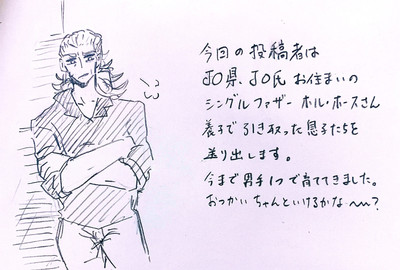 今回の投稿者は
JO県、JO氏 お住まいの
シングルファザー ホル・ホースさん
養子で引き取った息子たちを
送り出します。
今まで男手1つで育ててきました。
おつかい ちゃんといけるかな〜〜?